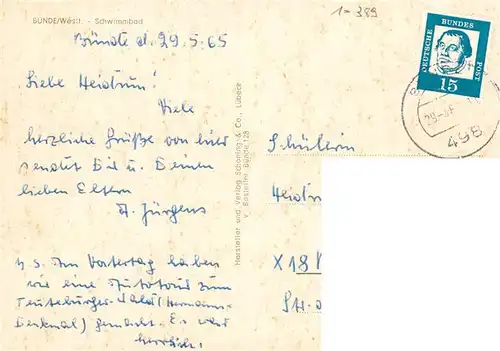 BÜNDE/Westf. - Schwimmbad
1=389
Bünde d. 29.5.65
Liebe Heidrun!
Viele
herzliche Grüße von hier
sendet Dir u. Deinen
lieben Eltern
A. Jürgens
N.S. Am Vatertag haben
wir eine Autotour zum
Teuteburger-Wald (Hermanns-
Denkmal) gemacht. Es war
herrlich!
Hersteller und Verlag Schöning & Co., Lübeck
Bestellnr. Bünde 128
DEUTSCHE BUNDESPOST
15
498
Schülerin
Heidrun
X 18
Str. d